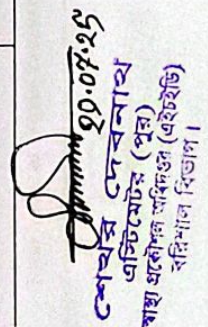 20.07.25
শেখর দেবনাথ
এস্টিমেটর (পুর)
স্বাস্থ্য প্রকৌশল অধিদপ্তর (এইচইডি)
বরিশাল বিভাগ।